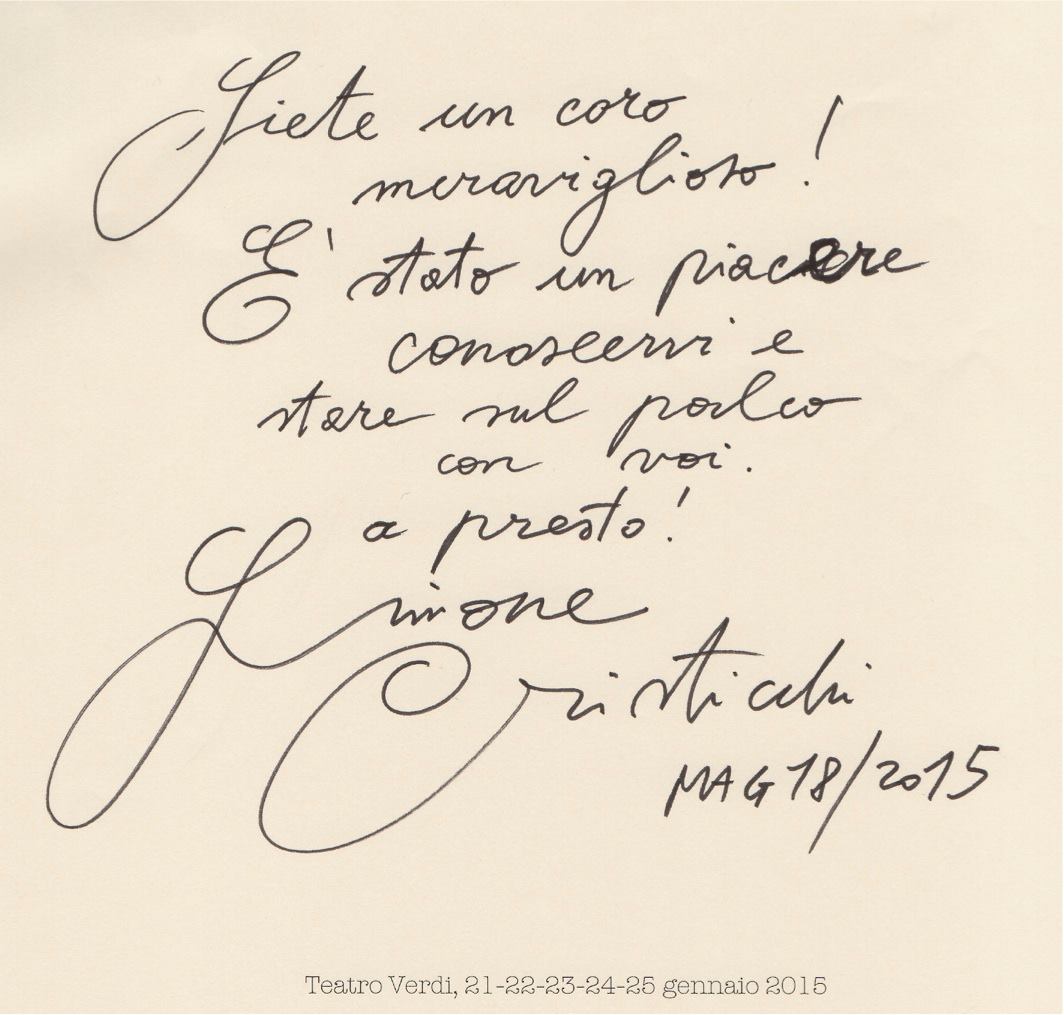 Siete un coro
meraviglioso!
E' stato un piacere
conoscervi e
stare sul palco
con voi.
a presto!
Simone
Cristicchi
MAG 18/2015
Teatro Verdi, 21-22-23-24-25 gennaio 2015